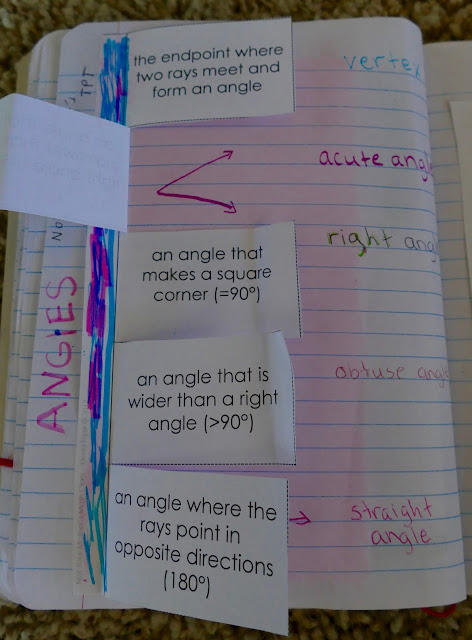 the endpoint where
two rays meet and
form an angle
verte
TPT
acute angl
an angle that
makes a square
corner (=90°)
right ang
ANGLES
an angle that is
wider than a right
angle (>90°)
obtuse angle
an angle where the
rays point in
opposite directions
(180°)
straight
angle